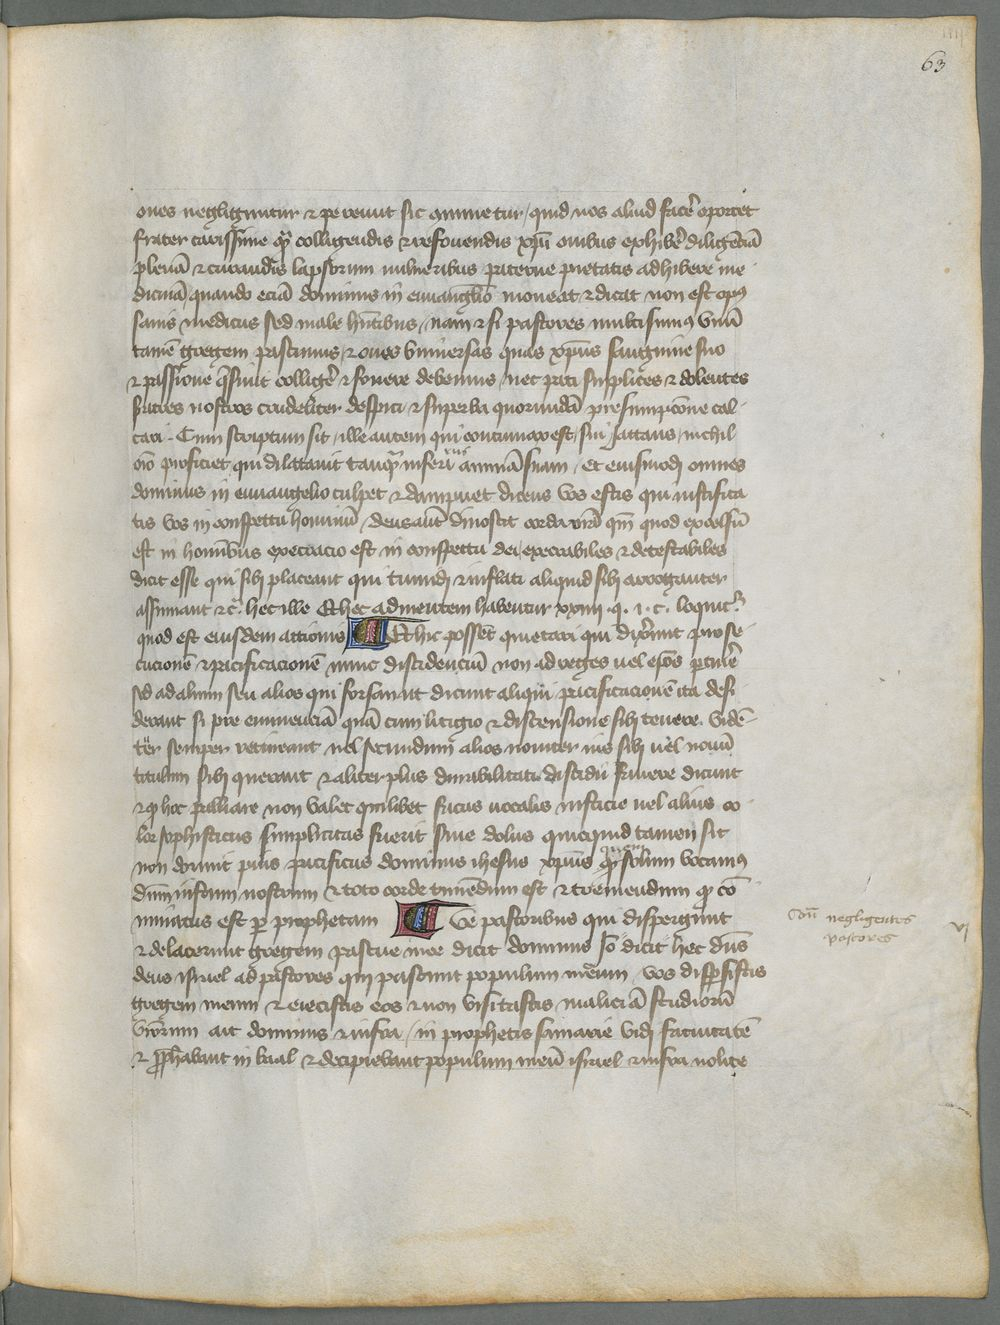 63
oues negliguntur ⁊ pereunt sic ammoᷠetur / quid nos aliud facẽ oportet
frater carissime qͣ colligendis ⁊ refouendis xp̃i ouibus exhibẽ diligẽciã
plenã ⁊ curandis lapsorum vulneribus paterne pietatis adhibere me
dicinã / quando eciã dominus in euuanglio moneat ⁊ dicat non est opꝰ
sanis medicus sed male hñtibus / nam ⁊ si pastores multi sumꝰ vnũ
tamẽ gregem pascimus / ⁊ oues vniuersas quas xp̃us sanguine suo
⁊ passione q̃siuit colligẽ ⁊ fouere debemus / nec pati suplices ⁊ dolentes
fratres nostros crudeliter despici ⁊ superba quorundã presumpcõne cal-
cari . Cum scriptum sit / ille autem qui contumax est / sui iattans / nichil
oĩo proficiet qui dilatauit tanqͣ inferꝰ animã suam . et eiusmodi omnes
dominus in euuangelio culpet ⁊ dampnet dicens vos estis qui iustifica
tis vos in conspectu hominũ / deus aũt dinoscit corda vrã qm̃ quod excelsũ
est in homĩbus execracio est in conspectu dei / execrabiles ⁊ detestabiles
dicit esse qui sibi placeant qui tumidi ⁊ inflati aliquid sibi arroganter
assumant ⁊c̃. hec ille Et hec ad mentem habentur xxiiii . q . 1 . c . loquit̃.
quod est eiusdem actionis Et hic possẽt quietari qui dixẽrint pro se
cucionẽ ⁊ pacificacionẽ nunc discidenciũ non ad reges uel ep̃os ptinẽ
sed ad alium seu alios qui forsan ut dicunt aliqui pacificacionẽ ita desi
derant si pre eminenciã quã cum litigio ⁊ discensione sibi tenere . Vidẽ-
tur semper retineant uel secundum alios nouiter ius sibi uel nouũ
titulum sibi querant ⁊ aliter plus durabilitati discidii fauere dicunt
⁊ q̃ hoc palliare non valet quilibet fucus vocalis iusticie uel alius co-
lor sophisticus simplicitas fuerit siue dolus quicquid tamen sit
non dormit pius pacificus dominus ihesus xp̃us quem solum vocamꝰ
dñm iustum nostrum ⁊ toto corde timendum est ⁊ tremendum q̃ cõ
minatus est per prophetam Ve pastoribus qui dispergunt
⁊ delacerant gregem pascue mee dicit dominus Iõ dicit hec dñs
deus israel ad pastores qui pascunt populum meum / vos disp̃sistis
gregem meum ⁊ eiecistis eos ⁊ non visitastis maliciã studiorũ
vrorum ait dominus ⁊ infra / in prophetis samarie vidi fatuitatẽ
⁊ p̃phãbant in baal ⁊ decipiebant populum meũ israel ⁊ infra nolite
Cõn negligentes
pastores